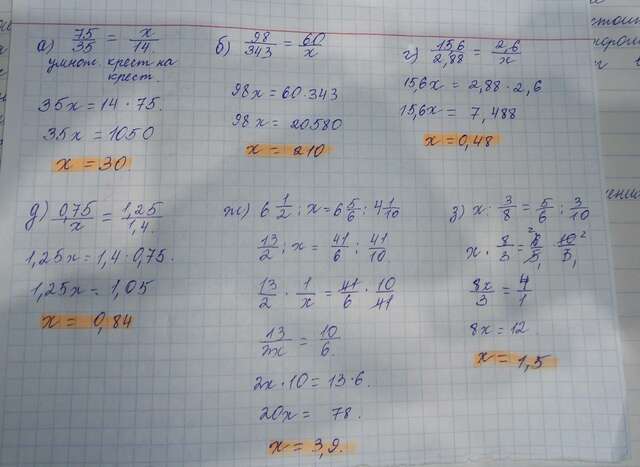 а) 75/35 = x/14.
умнож. крест на
крест.
35x = 14 · 75.
35x = 1050
x = 30.
б) 98/343 = 60/x
98x = 60 · 343
98x = 20580
x = 210
г) 15,6/2,88 = 2,6/x
15,6x = 2,88 · 2,6
15,6x = 7,488
x = 0,48
д) 0,75/x = 1,25/1,4.
1,25x = 1,4 · 0,75.
1,25x = 1,05
x = 0,84
ж) 6 1/2 : x = 6 5/6 : 4 1/10
13/2 : x = 41/6 : 41/10
13/2 · 1/x = 41/6 · 10/41
13/2x = 10/6.
2x · 10 = 13 · 6.
20x = 78.
x = 3,9.
з) x · 3/8 = 5/6 : 3/10
x · 8/3 = 6/5 · 10/3
8x/3 = 4/1
8x = 12.
x = 1,5